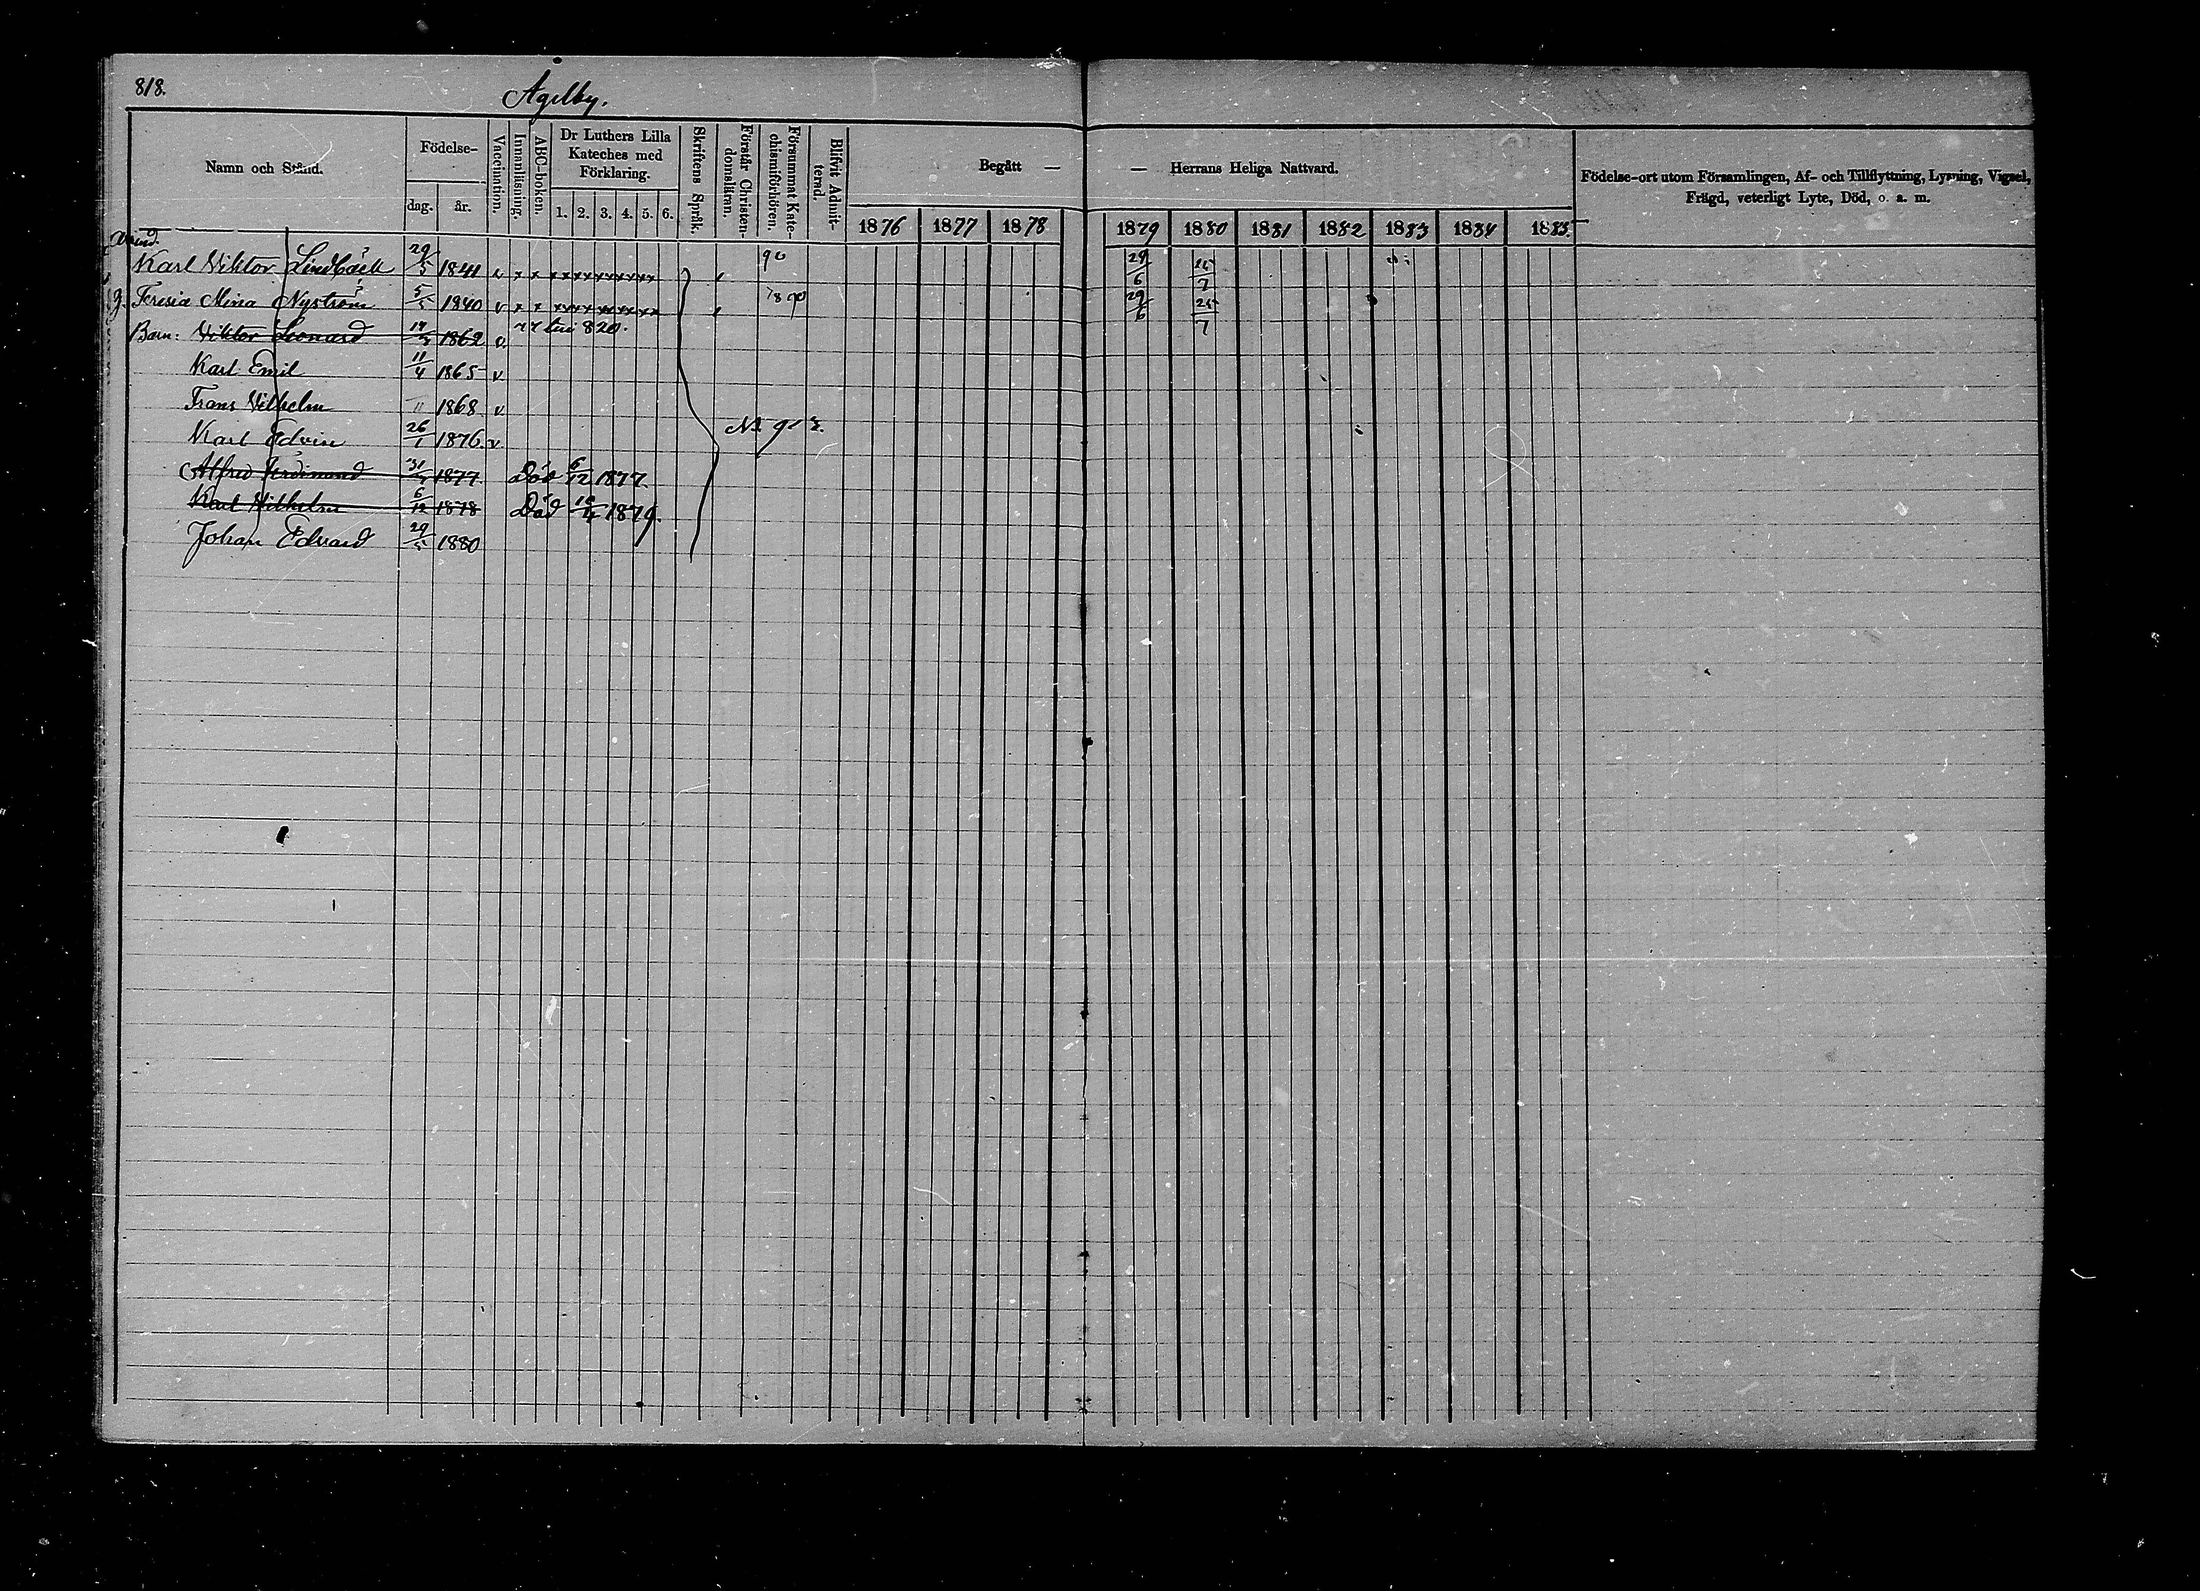 818.
Ågelby.
Namn och Stånd.
Födelse-
dag.
år.
Vaccination.
Innanläsning.
ABC-boken.
Dr Luthers Lilla
Kateches med
Förklaring.
1. 2. 3. 4. 5. 6.
Skriftens Språk.
Förstår Christen-
domsläran.
Försummat Kate-
chismiförhören.
Blifvit Admit-
terad.
Begått —
— Herrans Heliga Nattvard.
1876 1877 1878 1879 1880 1881 1882 1883 1884 1885.
Födelse-ort utom Församlingen, Af- och Tillflyttning, Lysning, Vigsel,
Frägd, veterligt Lyte, Död, o. a. m.
Karl Viktor Lindbäck 29/5 1841 v x x x x x x x x x x x 90 29/6 25/7
Teresia Mina Nyström 5/5 1840 v x x x x x x x x x x x 78 90 29/6 25/7
Barn: Viktor Leonard 1862 v. 820.
Karl Emil 11/4 1865 v
Frans Vilhelm 1868 v
Karl Edvin 26/1 1876. v.
Alfred Ferdinand 1877 Död 6/12 1877
Karl Vilhelm 6/12 1878 Död 1879.
Johan Edvard 29/5 1880